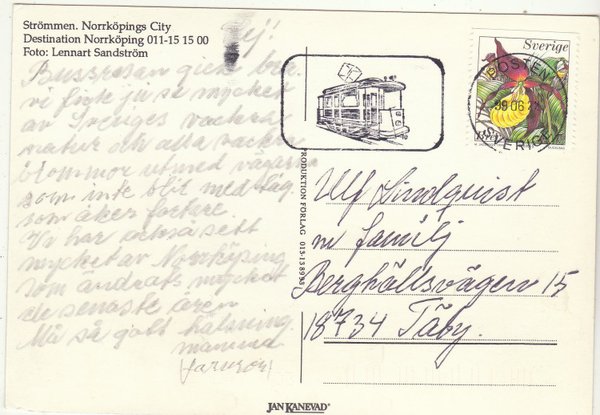 Strömmen. Norrköpings City
Destination Norrköping 011-15 15 00
Foto: Lennart Sandström
Hej!
Bussresan gick bra.
vi fick ju se mycket
av Sveriges vackra
natur och alla vackra
blommor utmed vägarna
som inte blir med tåg
som åker fortare.
Vi har också sett
mycket av Norrköping
som ändrats mycket
de senaste åren
Må så gott hälsning
mamma
(farmor)
PRODUKTION FÖRLAG 013-138998
Sverige
POSTEN
99 06 2
SVERIGE
Ulf Lindquist
m familj
Berghällsvägen 15
18734 Täby.
JAN KANEVAD®